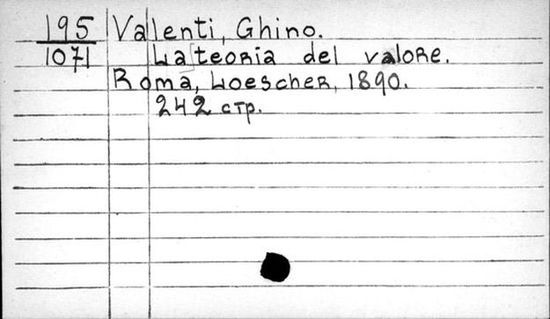 195 Valenti, Ghino.
1071 La teoria del valore.
Roma, Loescher, 1890.
242 стр.